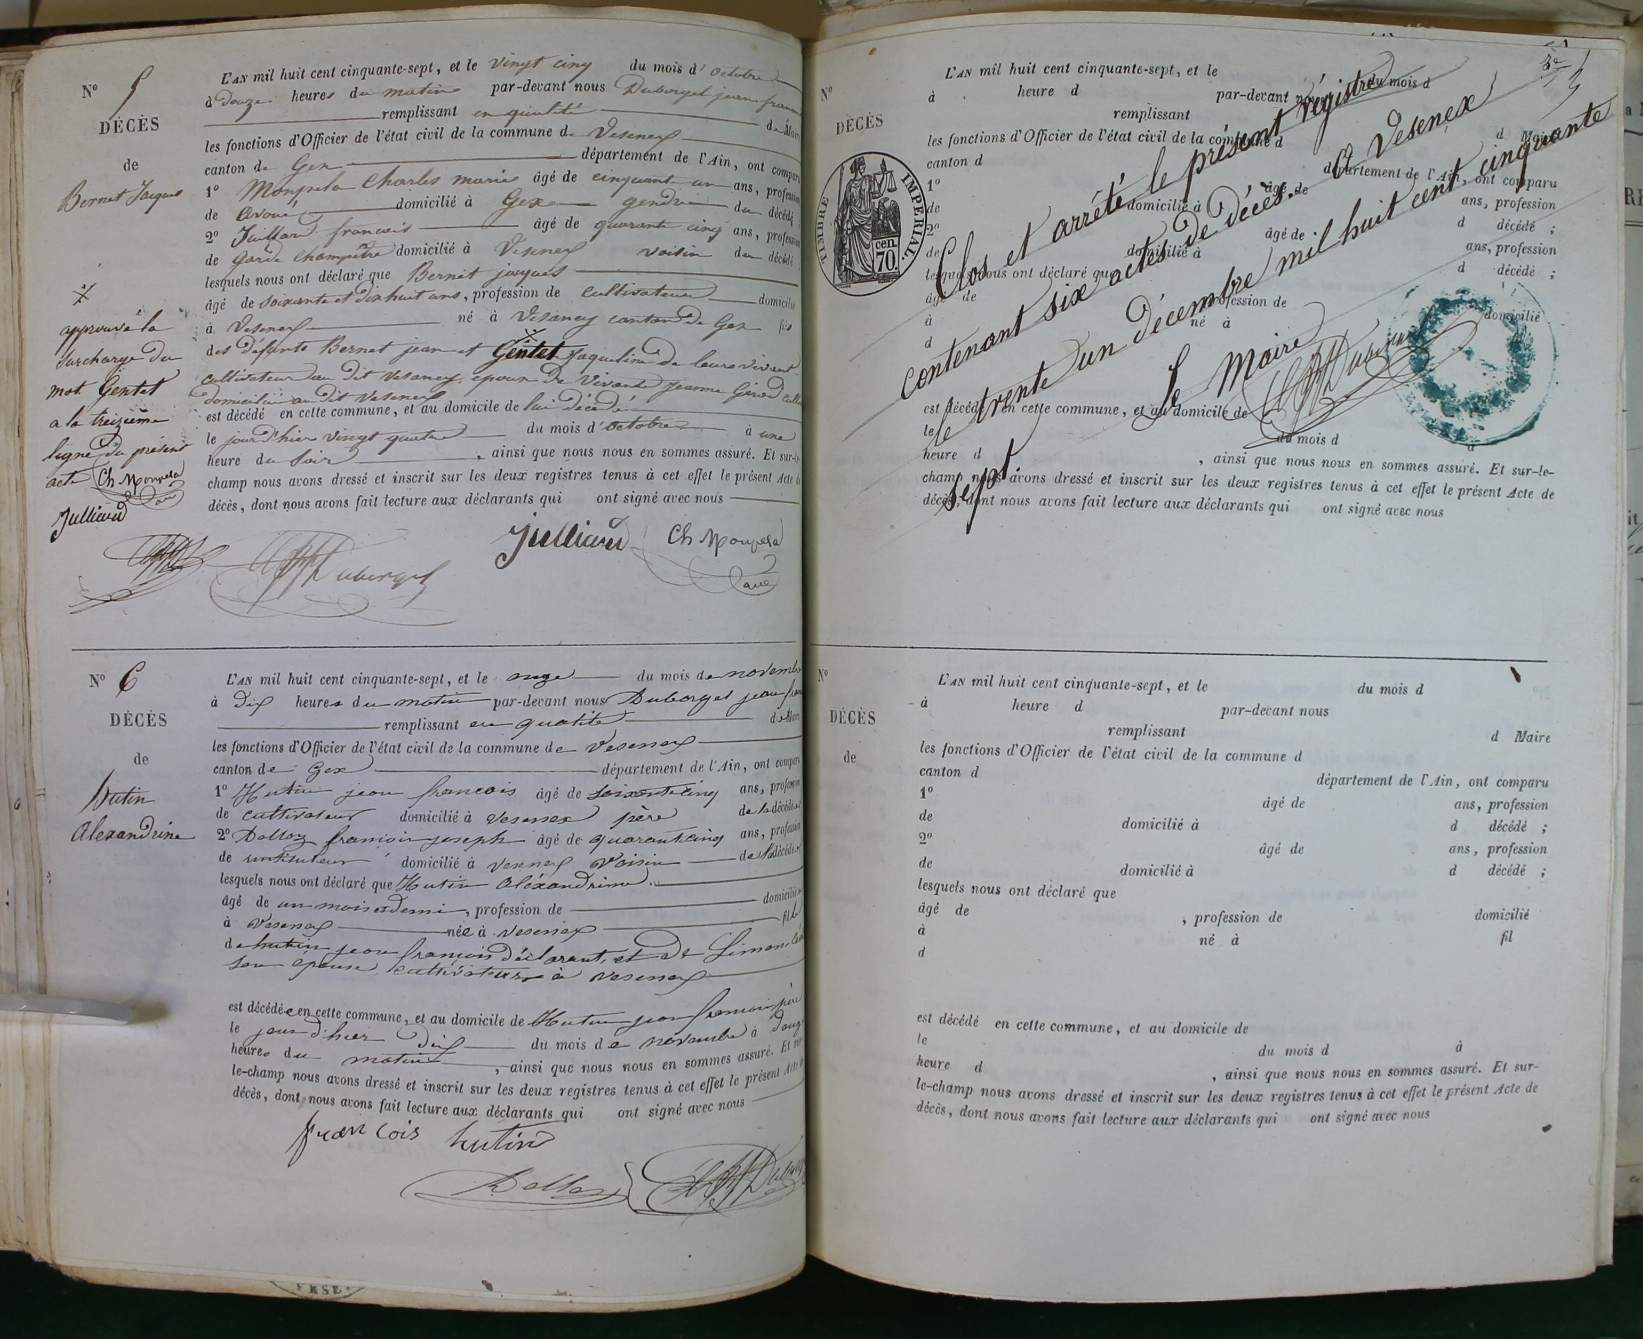 N° 5
DÉCÈS
de
Bernet Jacques
L'AN mil huit cent cinquante-sept, et le vingt cinq du mois d'octobre
à douze heures du matin par-devant nous Duborget jean françois
remplissant en qualité de Maire
les fonctions d'Officier de l'état civil de la commune de Vesenex
canton de Gex département de l'Ain, ont comparu
1° Monpela Charles marie âgé de cinquant un ans, profession
de avoué domicilié à Gex gendre du décédé
2° Juillard francois âgé de quarante cinq ans, profession
de garde champêtre domicilié à Vesenex voisin du décédé
lesquels nous ont déclaré que Bernet jacques
âgé de soixante et dix huit ans, profession de cultivateur domicilié
à Vesenex né à Vesancy canton de Gex fils
des défunts Bernet jean et Gentet Jaqueline de leurs vivant
cultivateur au dit Vesancy, époux de vivante Jeanne Girod
domiciliée au dit Vesenex
est décédé en cette commune, et au domicile de lui décédé
le jour d'hier vingt quatre du mois d'octobre à une
heure du soir, ainsi que nous nous en sommes assuré. Et sur-le-
champ nous avons dressé et inscrit sur les deux registres tenus à cet effet le présent Acte de
décès, dont nous avons fait lecture aux déclarants qui ont signé avec nous
approuvé la
surcharge du
mot Gentet
a la treizième
ligne du présent
acte Ch. Monpela
avé
Julliard
Julliard Ch Monpela
avé
Duborget
N° 6
DÉCÈS
de
hutin
Alexandrine
L'AN mil huit cent cinquante-sept, et le onze du mois de novembre
à Dix heures du matin par-devant nous Duborget jean
remplissant en qualité de Maire
les fonctions d'Officier de l'état civil de la commune de Vesenex
canton de Gex département de l'Ain, ont comparu
1° Hutin jean francois âgé de soixantecinq ans, profession
de cultivateur domicilié à vesenex père de la décédée
2° Dalloz francois joseph âgé de quarantecinq ans, profession
de instituteur domicilié à vesenex Voisin de la décédée
lesquels nous ont déclaré que Hutin Aléxandrine
âgé de un mois et demi, profession de domiciliée
à vesenex née à vesenex fille
de hutin jean françois déclarant, et de Simon
son épouse cultivateurs à vesenex
est décédée en cette commune, et au domicile de Hutin jean francois père
le jour d'hier dix du mois de novembre à Douze
heures du matin, ainsi que nous nous en sommes assuré. Et sur-
le-champ nous avons dressé et inscrit sur les deux registres tenus à cet effet le présent Acte de
décès, dont nous avons fait lecture aux déclarants qui ont signé avec nous
francois hutin
Dalloz
N°
DÉCÈS
TIMBRE IMPÉRIAL
70 cen.
L'AN mil huit cent cinquante-sept, et le du mois d
à heure d par-devant nous
remplissant d Maire
les fonctions d'Officier de l'état civil de la commune d
canton d département de l'Ain, ont comparu
1° âgé de ans, profession
de domicilié à d décédé ;
2° âgé de ans, profession
de domicilié à d décédé ;
lesquels nous ont déclaré que
âgé de profession de domicilié
à né à
d
est décédé en cette commune, et au domicile de
le du mois d à
heure d , ainsi que nous nous en sommes assuré. Et sur-le-
champ nous avons dressé et inscrit sur les deux registres tenus à cet effet le présent Acte de
décès, dont nous avons fait lecture aux déclarants qui ont signé avec nous
Clos et arrêté le présent registre
contenant six actes de décès. A Vesenex
le trente un décembre mil huit cent cinquante
sept.
le Maire
N°
DÉCÈS
de
L'AN mil huit cent cinquante-sept, et le du mois d
à heure d par-devant nous
remplissant d Maire
les fonctions d'Officier de l'état civil de la commune d
canton d département de l'Ain, ont comparu
1° âgé de ans, profession
de domicilié à d décédé ;
2° âgé de ans, profession
de domicilié à d décédé ;
lesquels nous ont déclaré que
âgé de , profession de domicilié
à né à fil
d
est décédé en cette commune, et au domicile de
le du mois d à
heure d , ainsi que nous nous en sommes assuré. Et sur-
le-champ nous avons dressé et inscrit sur les deux registres tenus à cet effet le présent Acte de
décès, dont nous avons fait lecture aux déclarants qui ont signé avec nous